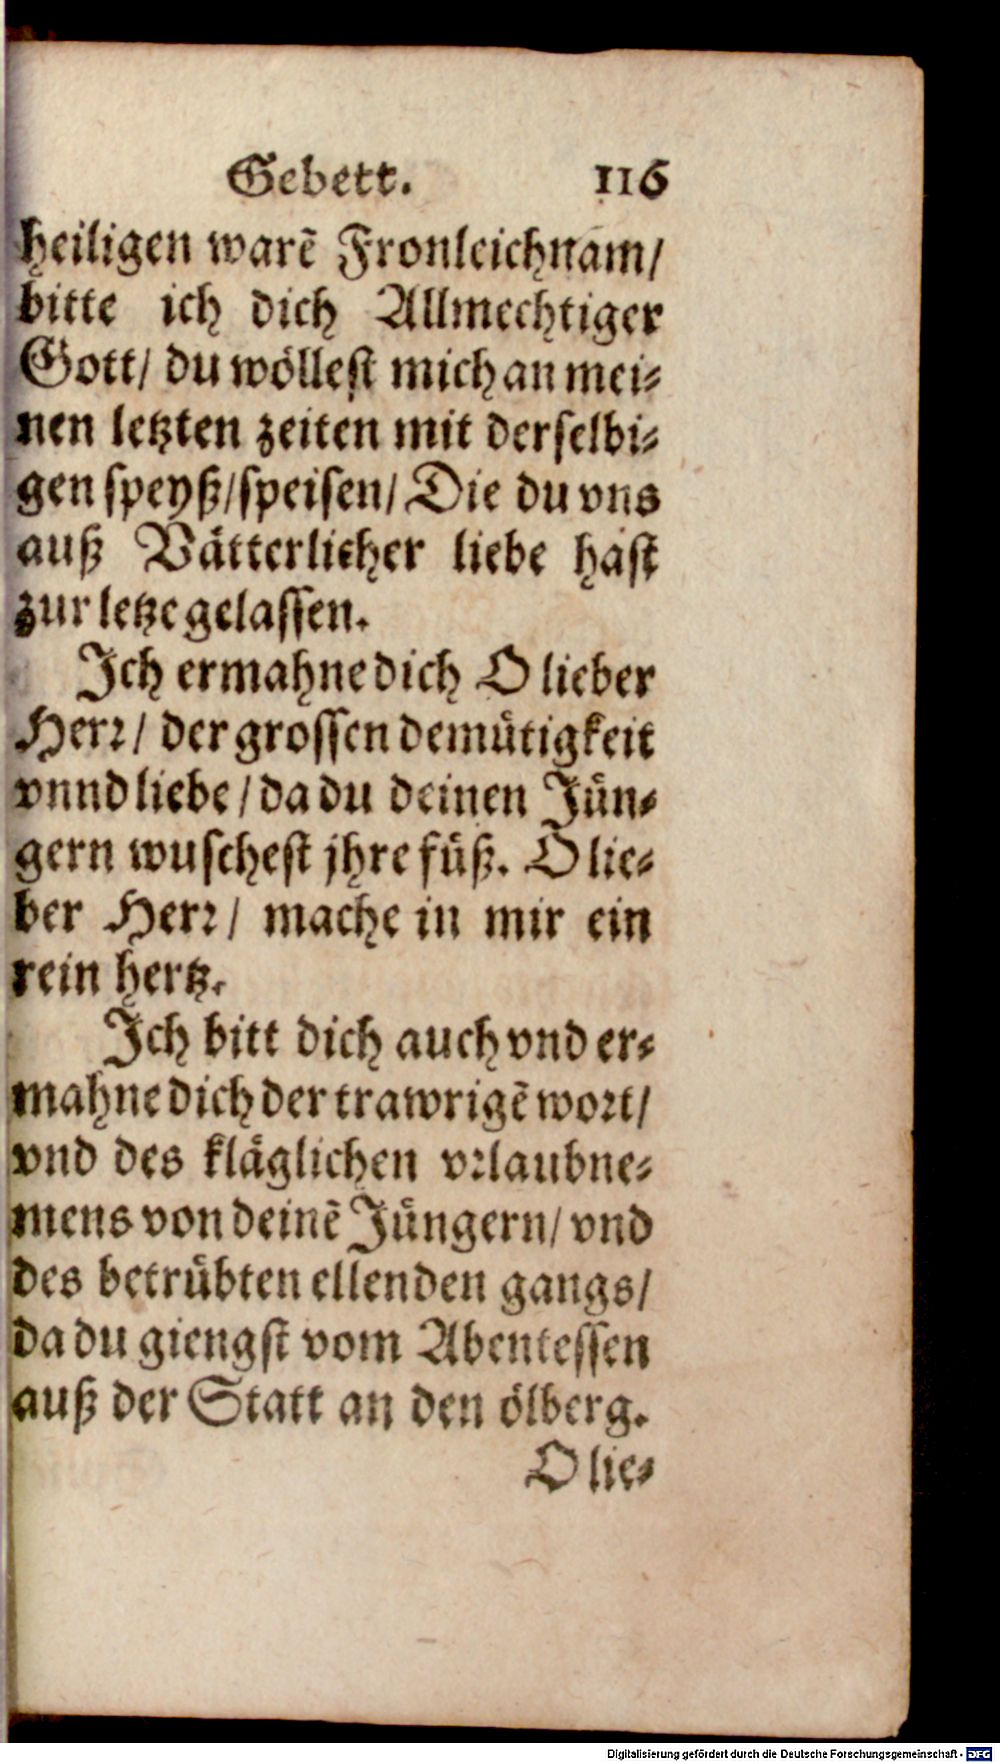 Gebett. 116
heiligen warẽ Fronleichnam/
bitte ich dich Allmechtiger
Gott/ du wöllest mich an mei-
nen letzten zeiten mit derselbi-
gen speyß/speisen/ Die du vns
auß Vätterlicher liebe hast
zur letze gelassen.
Ich ermahne dich O lieber
Herr/ der grossen demütigkeit
vnnd liebe/ da du deinen Jün-
gern wuschest jhre füß. O lie-
ber Herr/ mache in mir ein
rein hertz.
Ich bitt dich auch vnd er-
mahne dich der trawrigẽ wort/
vnd des kläglichen vrlaubne-
mens von deinẽ Jüngern/ vnd
des betrübten ellenden gangs/
da du giengst vom Abentessen
auß der Statt an den ölberg.
O lie-
Digitalisierung gefördert durch die Deutsche Forschungsgemeinschaft - DFG